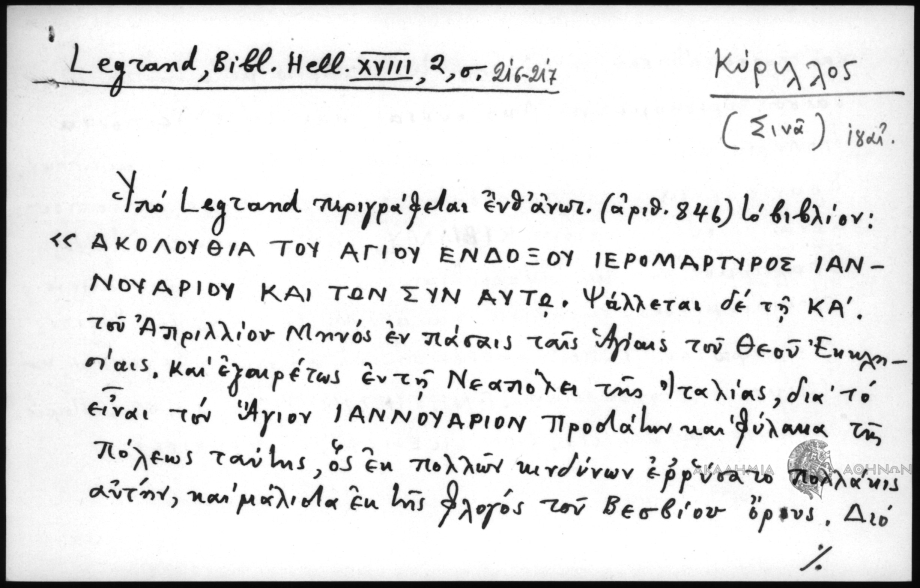 Legrand, Bibl. Hell. XVIII, 2, σ. 216-217
Κύριλλος
(Σινᾶ)
Ὑπό Legrand περιγράφεται ἐνθ' ἀνωτ. (ἀριθ. 846) τό βιβλίον:
« ΑΚΟΛΟΥΘΙΑ ΤΟΥ ΑΓΙΟΥ ΕΝΔΟΞΟΥ ΙΕΡΟΜΑΡΤΥΡΟΣ ΙΑΝ-
ΝΟΥΑΡΙΟΥ ΚΑΙ ΤΩΝ ΣΥΝ ΑΥΤῼ. Ψάλλεται δέ τῇ ΚΑ'.
τοῦ Ἀπριλλίου Μηνός ἐν πάσαις ταῖς Ἁγίαις τοῦ Θεοῦ Ἐκκλη-
σίαις, καί ἐξαιρέτως ἐν τῇ Νεαπόλει τῆς Ἰταλίας, διά τό
εἶναι τόν Ἅγιον ΙΑΝΝΟΥΑΡΙΟΝ Προστάτην καί φύλακα τῆς
πόλεως ταύτης, ὅς ἐκ πολλῶν κινδύνων ἐῤῥύσατο πολλάκις
αὐτήν, καί μάλιστα ἐκ τῆς φλογός τοῦ Βεσβίου ὄρους. Διό
%
ΑΚΑΔΗΜΙΑ ΑΘΗΝΩΝ